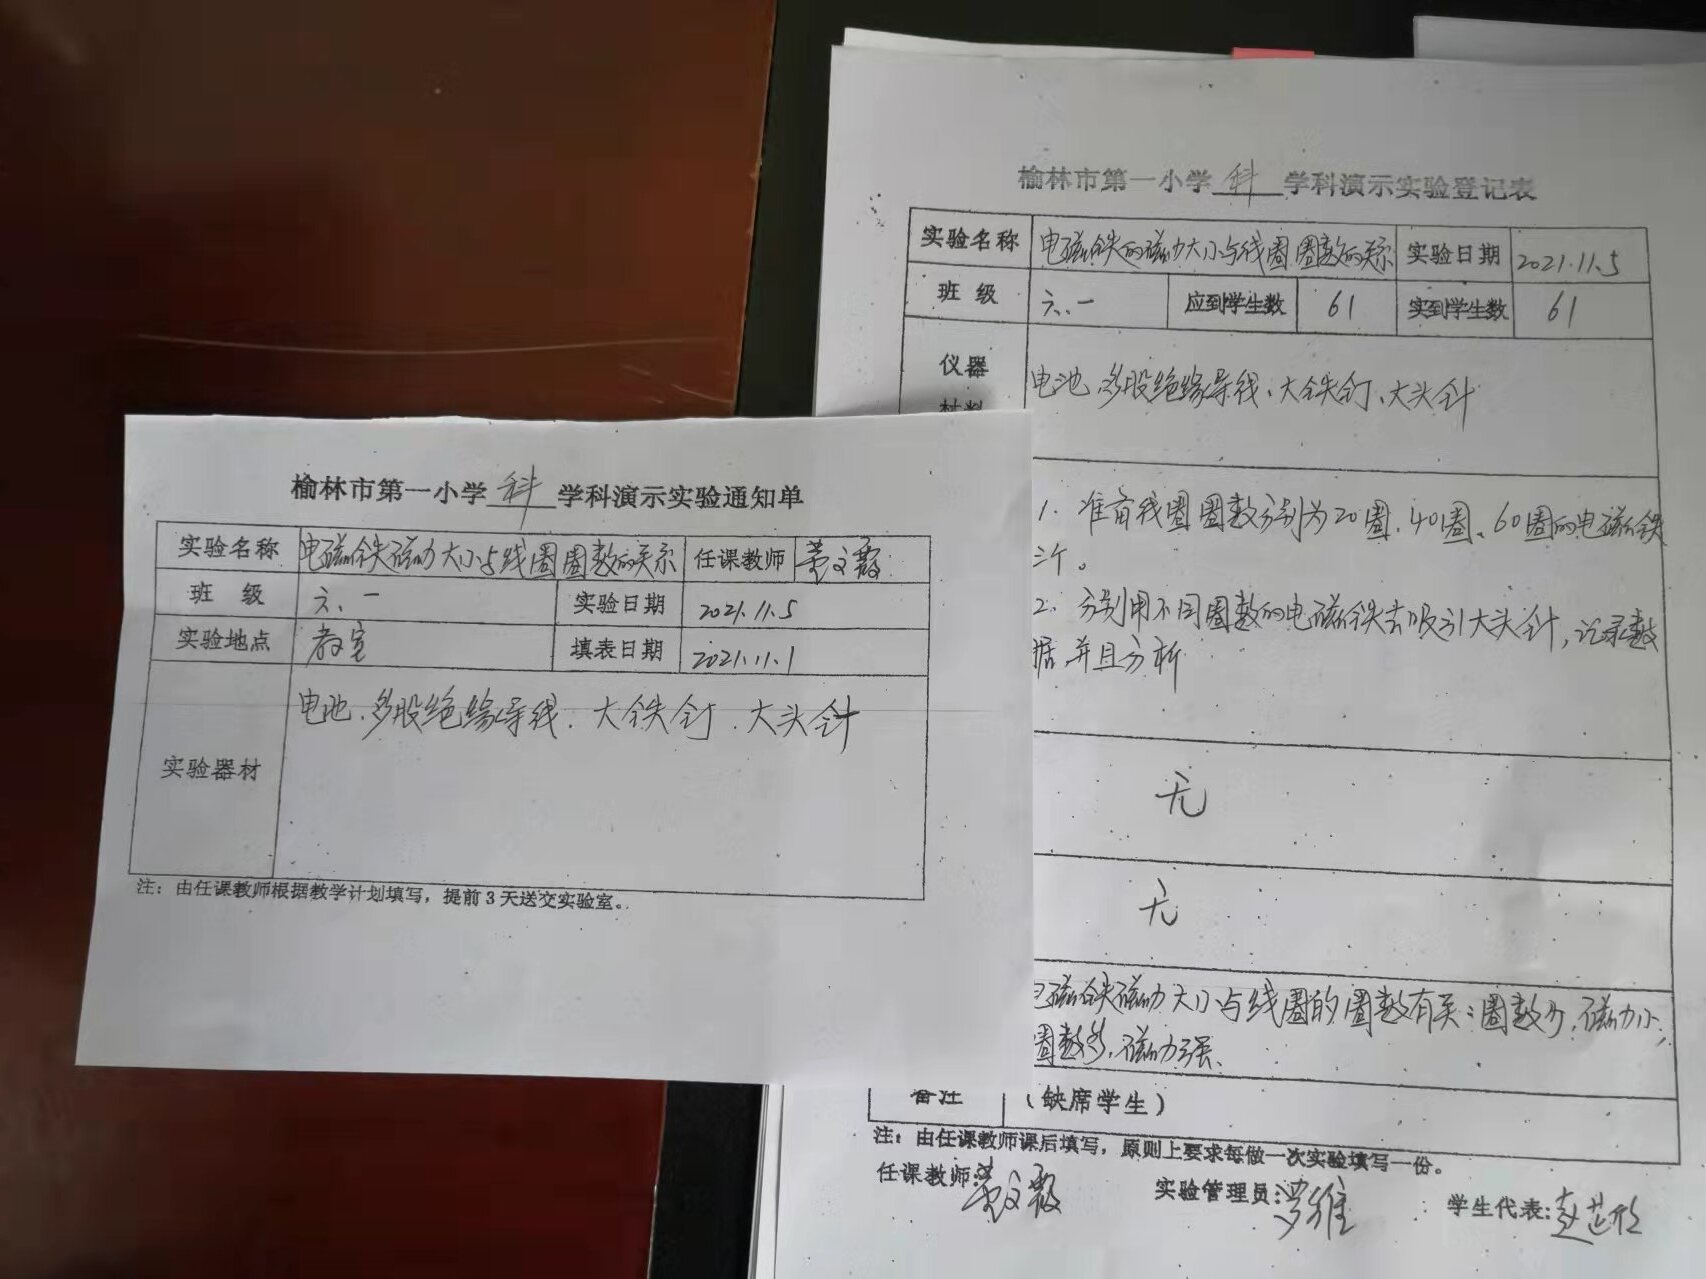 榆林市第一小学 科 学科演示实验通知单
实验名称 电磁铁磁力大小与线圈圈数的关系 任课教师 文霞
班 级 六、一 实验日期 2021.11.5
实验地点 教室 填表日期 2021.11.1
实验器材 电池、多股绝缘导线、大铁钉、大头针
注：由任课教师根据教学计划填写，提前3天送交实验室。
榆林市第一小学 科 学科演示实验登记表
实验名称 电磁铁的磁力大小与线圈圈数的关系 实验日期 2021.11.5
班 级 六、一 应到学生数 61 实到学生数 61
仪器
材料
电池、多股绝缘导线、大铁钉、大头针
1. 准备线圈圈数分别为20圈、40圈、60圈的电磁铁
三个。
2. 分别用不同圈数的电磁铁去吸引大头针，记录数
据，并且分析
无
无
电磁铁磁力大小与线圈的圈数有关：圈数少，磁力小，
圈数多，磁力强。
备注 （缺席学生）
注：由任课教师课后填写，原则上要求每做一次实验填写一份。
任课教师： 文霞 实验管理员：罗维 学生代表：赵芷